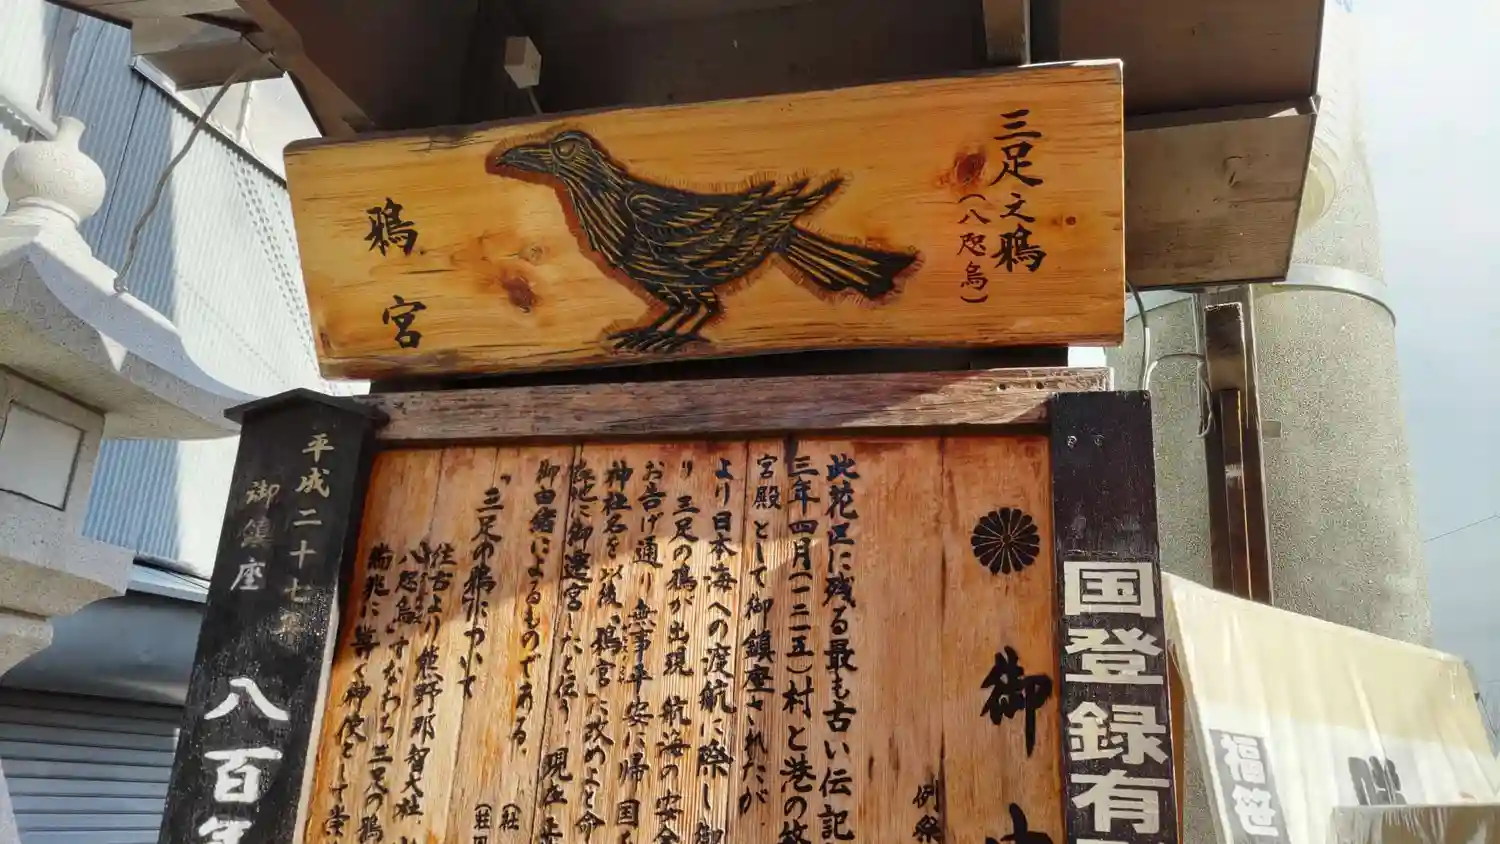 三足之鴉
(八咫烏)
鴉宮
国登録有
御
例祭
此花区に残る最も古い伝記
三年四月(一二一五)村と港の
宮殿として御鎮座されたが、
より日本海への渡航に際し御
り 三足の鴉が出現 航海の安全
お告げ通り 無事平安に帰国
神社名を以後、「鴉宮」に改めよと命
御遷宮したと伝う。現在
御由緒によるものである。
(社
三足の鴉について
往古より熊野那智大社、
八咫烏、すなわち三足の鴉
端兆に導く神使として
平成二十七
御鎮座
八百年
福笹